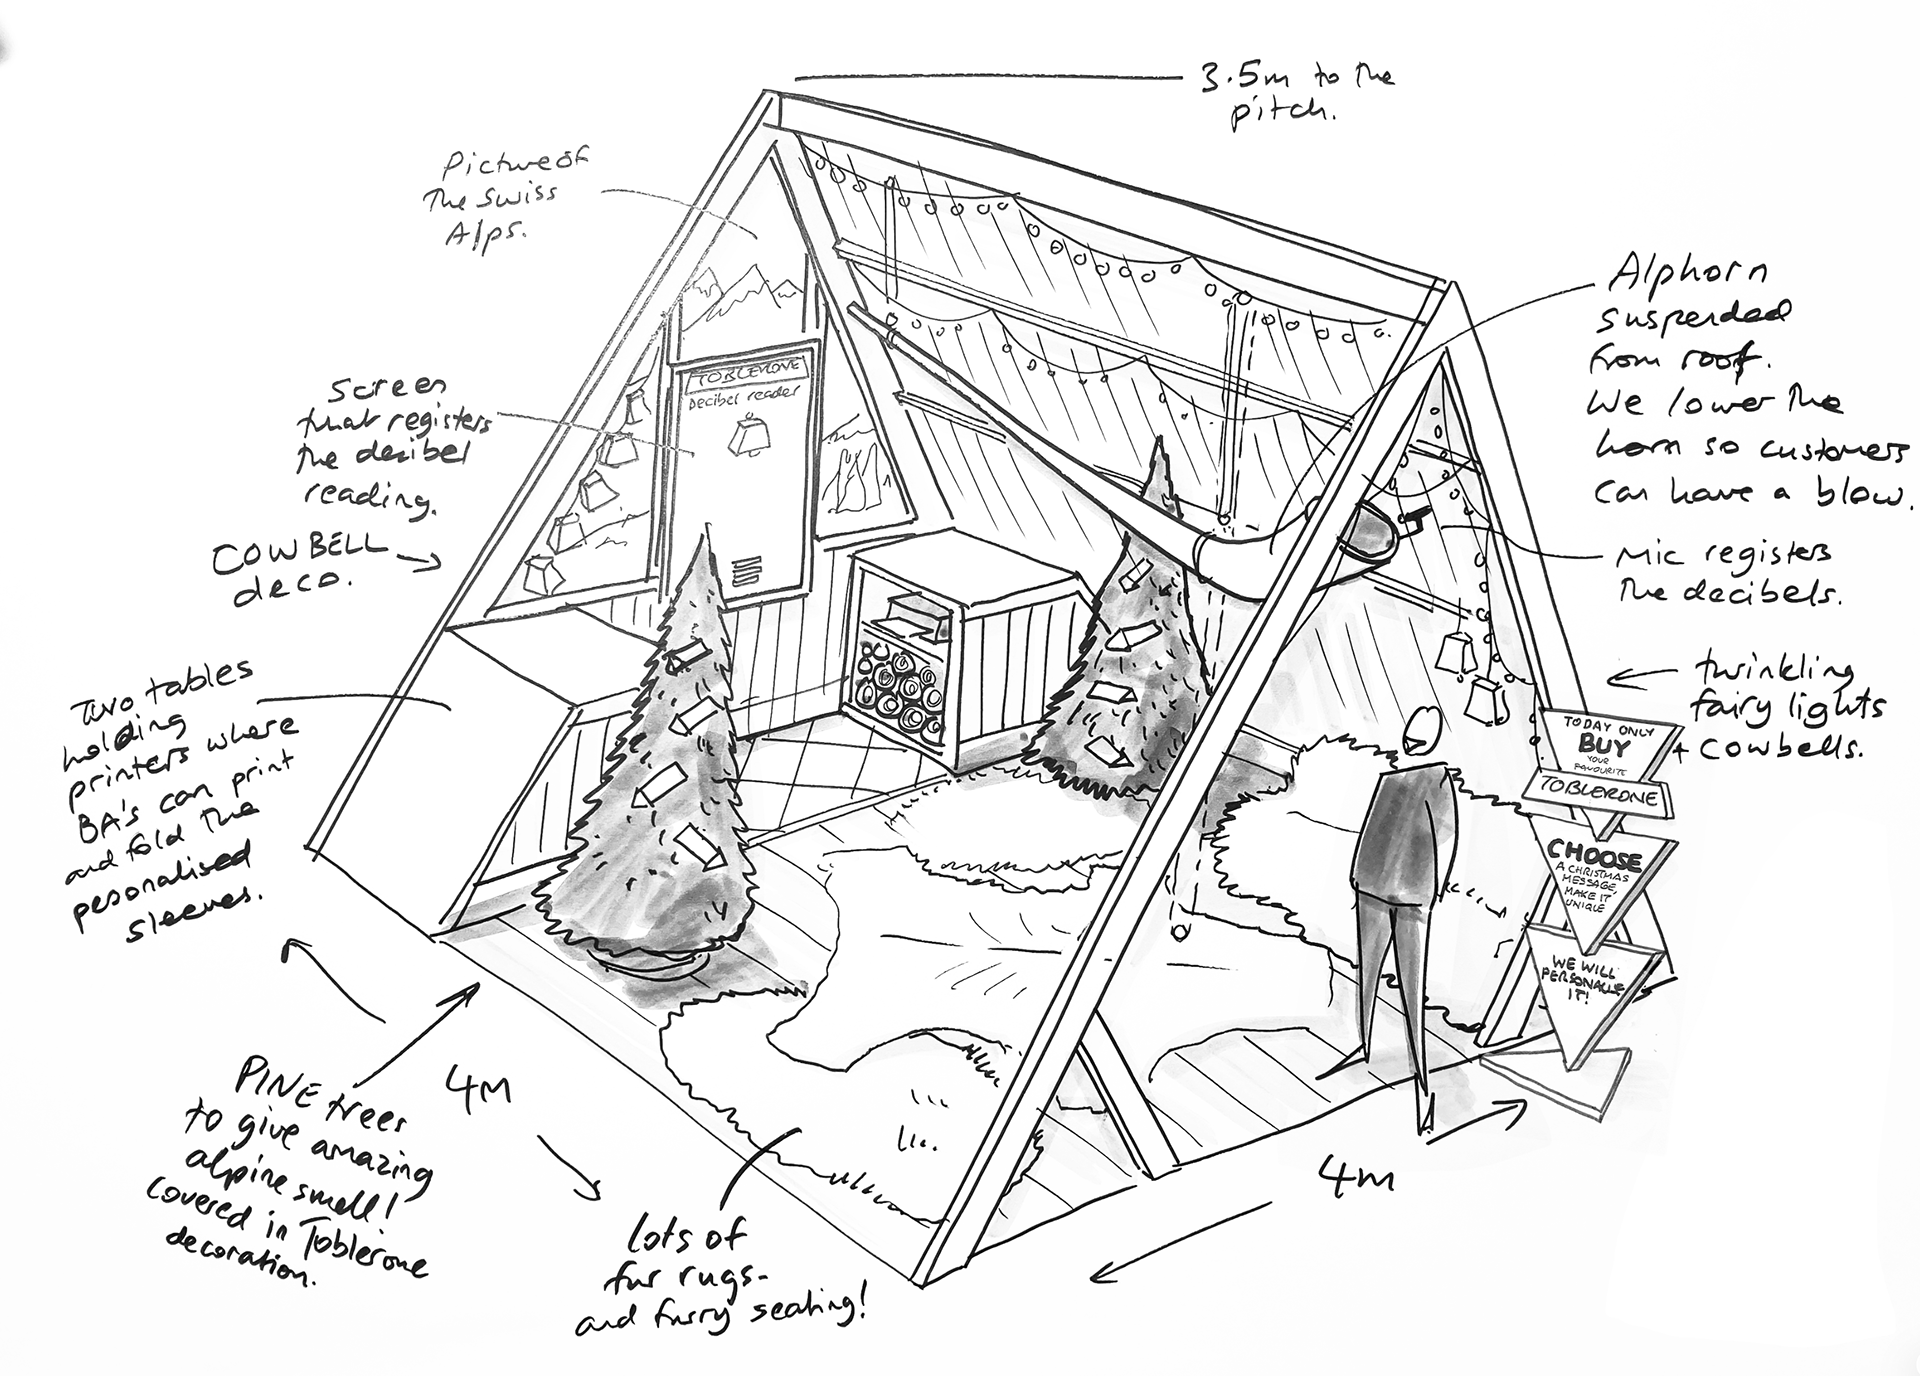 3.5m to the
pitch.
Picture of
the Swiss
Alps.
Alphorn
suspended
from roof.
We lower the
horn so customers
can have a blow.
Screen
that registers
the decibel
reading.
TOBLERONE
Decibel reader
COWBELL
deco.
Mic registers
the decibels.
twinkling
fairy lights
+ cowbells.
Two tables
holding
printers where
BA's can print
and fold the
pesonalised
sleeves.
TODAY ONLY
BUY
YOUR
FAVOURITE
TOBLERONE
CHOOSE
A CHRISTMAS
MESSAGE,
MAKE IT
UNIQUE
WE WILL
PERSONALISE
IT!
PINE trees
to give amazing
alpine smell!
covered in Toblerone
decoration.
4M
4M
lots of
fur rugs-
and furry seating!